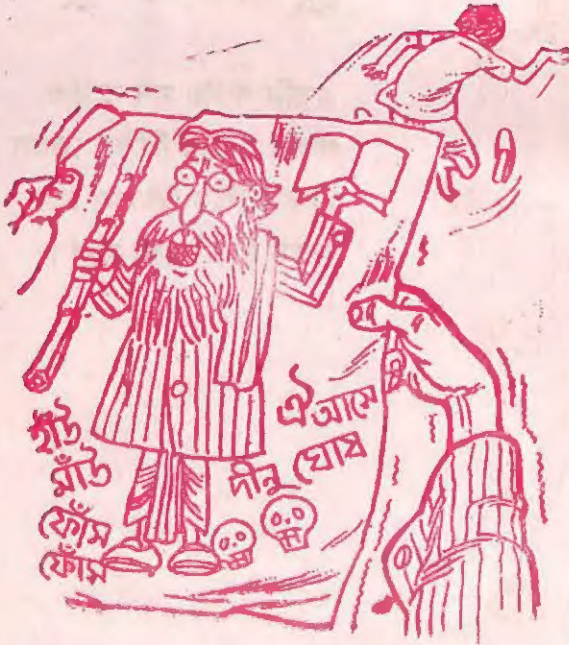 হাঁউ
মাঁউ
ফোঁস
ফোঁস
ঐ আসে
দীনু ঘোষ